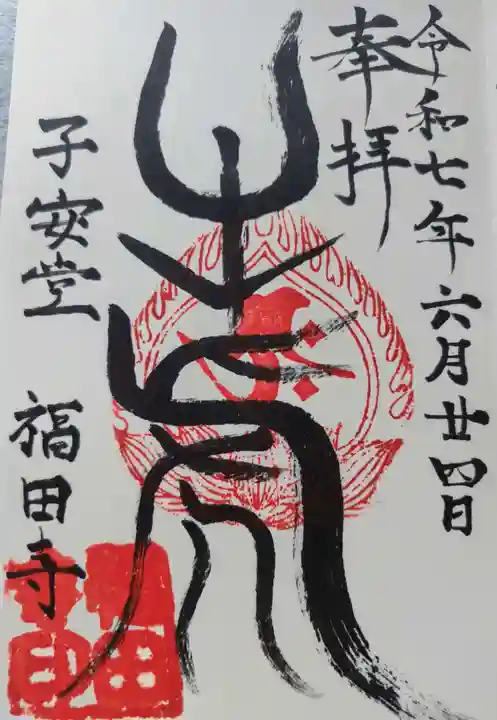 令和七年六月廿四日
奉拝
子安堂
福田寺
福田
寺印